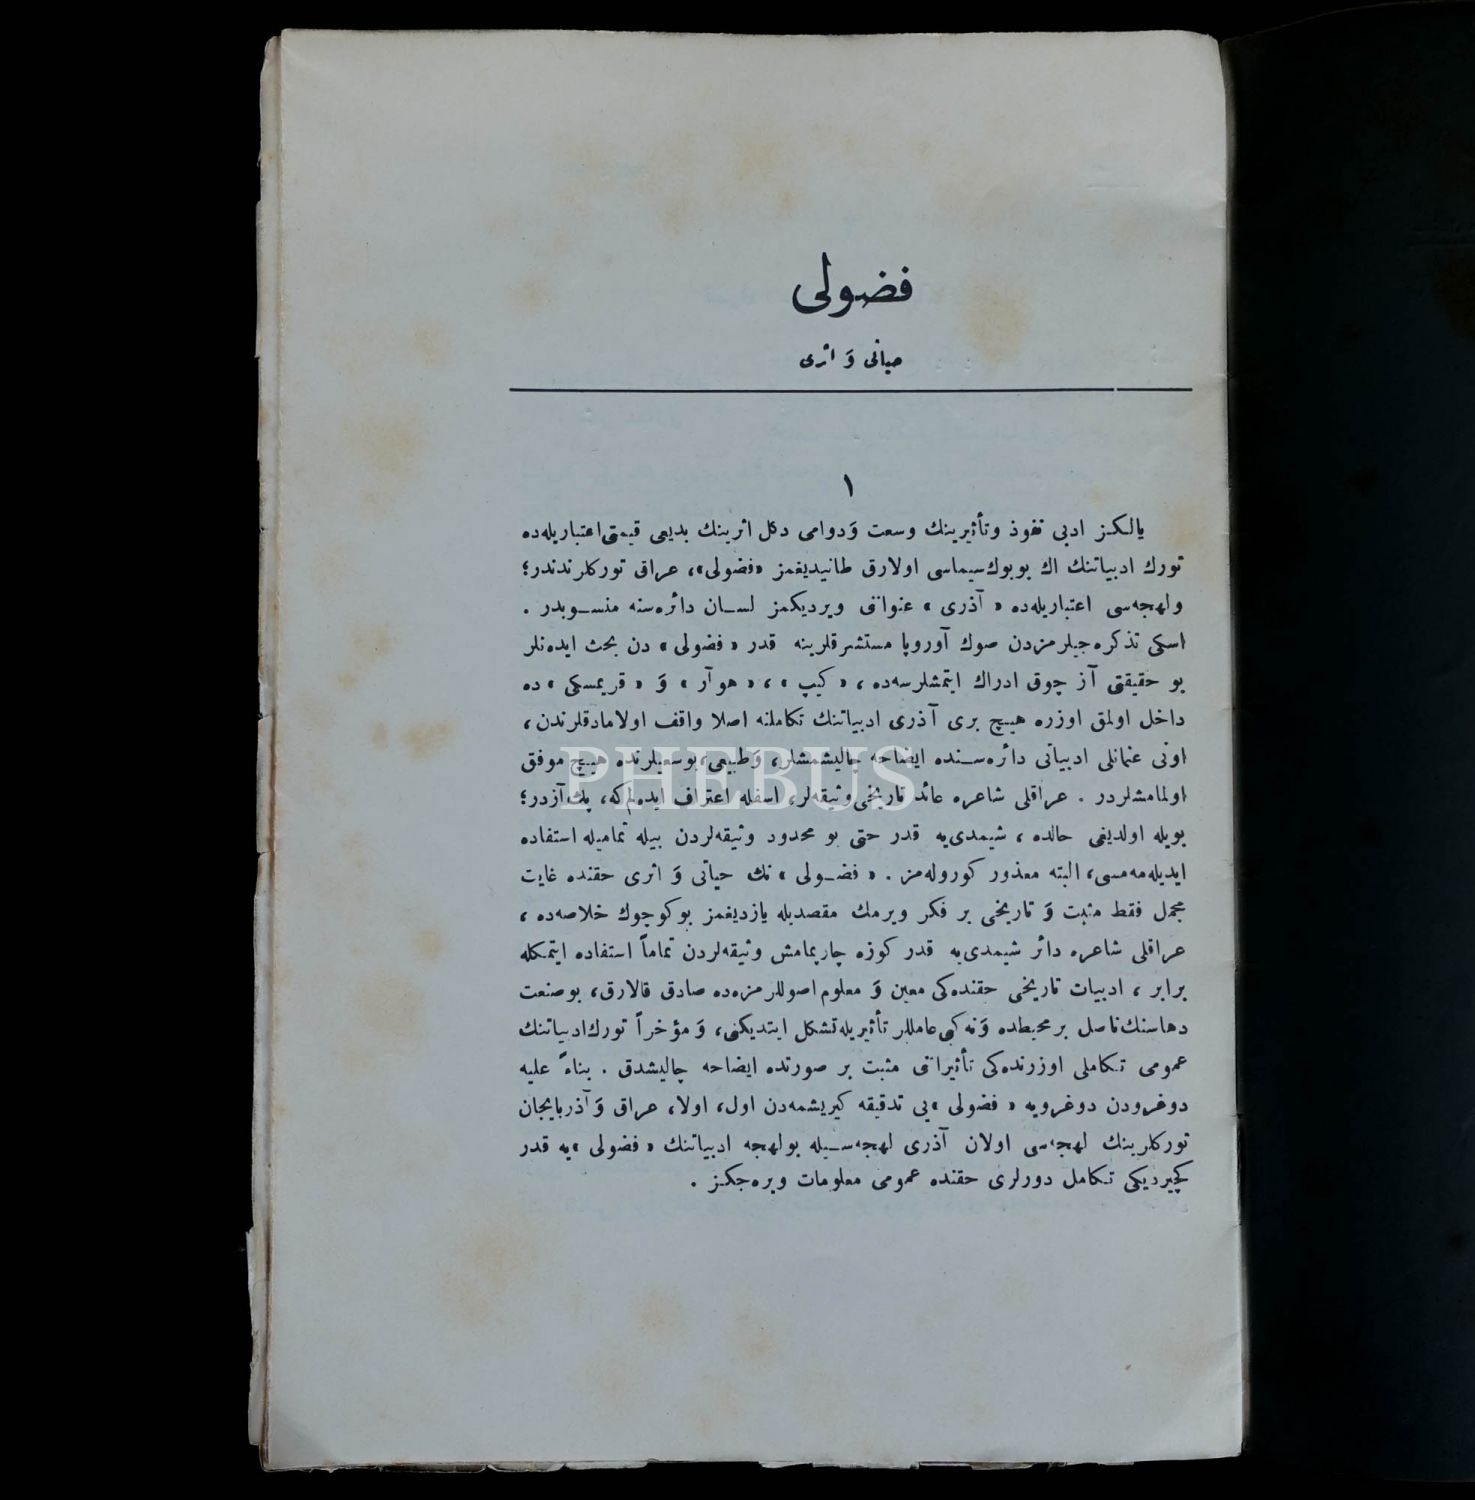 فضولی
حیاتی وَ اثری
١
یالکز ادبی نفوذ وتأثیرینك وسعت وَدوامی دکل اثرینك بدیعی قیمتی اعتباریله ده
تورك ادبیاتنك اك بویوك سیماسی اولارق طانیدیغمز «فضولی»، عراق تورکلرندندر؛
ولهجه‌سی اعتباریله‌ده « آذری » عنوانی ویردیکمز لسان دائره‌سنه منسوبدر .
اسکی تذکره‌جیلرمزدن صوك آوروپا مستشرقلرینه قدر « فضولی » دن بحث ایده‌نلر
بو حقیقتی آز چوق ادراك ایتمشلرسه‌ده ، « کیب » ، « هوآر » وَ « قریمسکی » ده
داخل اولمق اوزره هیچ بری آذری ادبیاتنك تکاملنه اصلا واقف اولامادقلرندن ،
اونی عثمانلی ادبیاتی دائره‌سنده ایضاحه چالیشمشلر، وَطبیعی، بوسعیلرنده هیچ موفق
اولمامشلردر . عراقلی شاعره عائد تاریخی وثیقه‌لر، اسفله اعتراف ایده‌لم‌که، پك آزدر؛
بویله اولدیغی حالده ، شیمدی‌یه قدر حتی بو محدود وثیقه‌لردن بیله تمامیله استفاده
ایدیله‌مه‌مسی، البته معذور کوروله‌مز . « فضولی » نك حیاتی وَ اثری حقنده غایت
مجمل فقط مثبت وَ تاریخی بر فکر ویرمك مقصدیله یازدیغمز بو کوچوك خلاصه‌ده ،
عراقلی شاعره دائر شیمدی‌یه قدر کوزه چارپمامش وثیقه‌لردن تماماً استفاده ایتمکله
برابر ، ادبیات تاریخی حقنده‌کی معین وَ معلوم اصوللرمزه‌ده صادق قالارق، بوصنعت
دهاسنك ناصل بر محیطده وَنه کبی عامللر تأثیریله تشکل ایتدیکنی، وَ مؤخراً تورك ادبیاتنك
عمومی تکاملی اوزرنده‌کی تأثیراتی مثبت بر صورتده ایضاحه چالیشدق . بناءً علیه
دوغرودن دوغرویه « فضولی »یی تدقیقه کیریشمه‌دن اول، اولا، عراق وَآذربایجان
تورکلرینك لهجه‌سی اولان آذری لهجه‌سیله بولهجه ادبیاتنك « فضولی »یه قدر
کچیردیکی تکامل دورلری حقنده عمومی معلومات ویره‌جکز .
PHEBUS